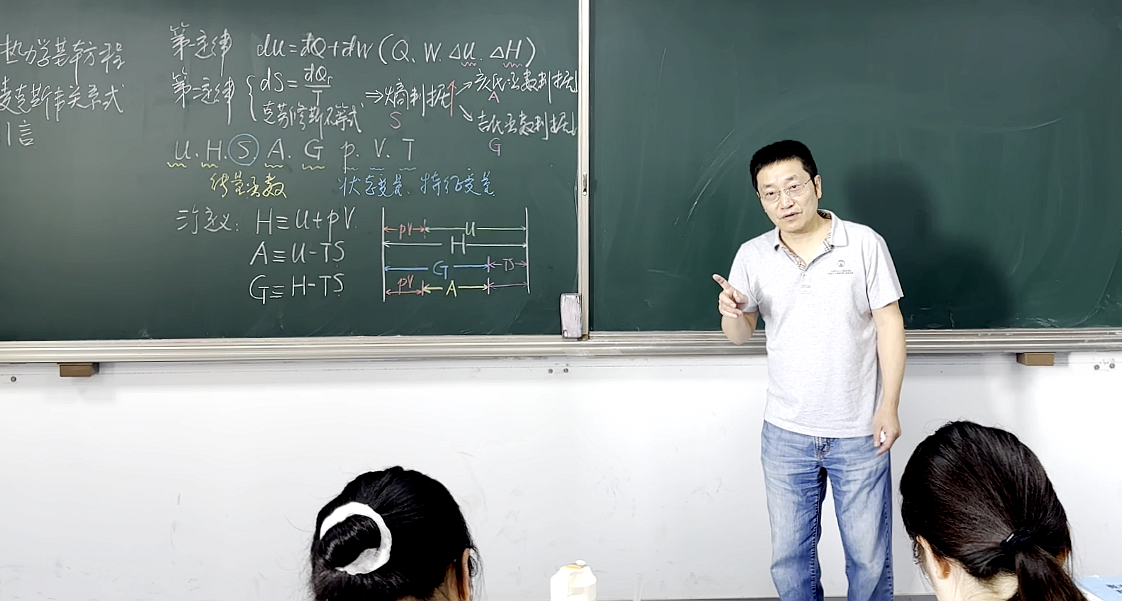 热力学基本方程
麦克斯韦关系式
引言
第一定律 dU=đQ+đW (Q. W. ΔU. ΔH)
第二定律 { dS=đQr/T
克劳修斯不等式
⇒熵判据
S
亥氏函数判据
A
吉氏函数判据
G
U. H. S A. G p. V. T
能量函数 状态变量、特征变量
三个定义: H≡U+pV.
A≡U-TS
G≡H-TS
pV U
H
G TS
pV A